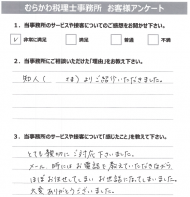 むらかわ税理士事務所 お客様アンケート
1．当事務所のサービスや接客についてのご感想をお聞かせ下さい。
レ 非常に満足 満足 普通 不満
2．当事務所にご相談いただけた「理由」をお教え下さい。
知人（ さま）よりご紹介いただきました。
3．当事務所のサービスや接客について「感じたこと」を教えて下さい。
とても親切にご対応下さいました。
メール、時にはお電話で教えていただきながら
ほぼお任せしてしまいお世話になってしまいました。
大変ありがとうございました。